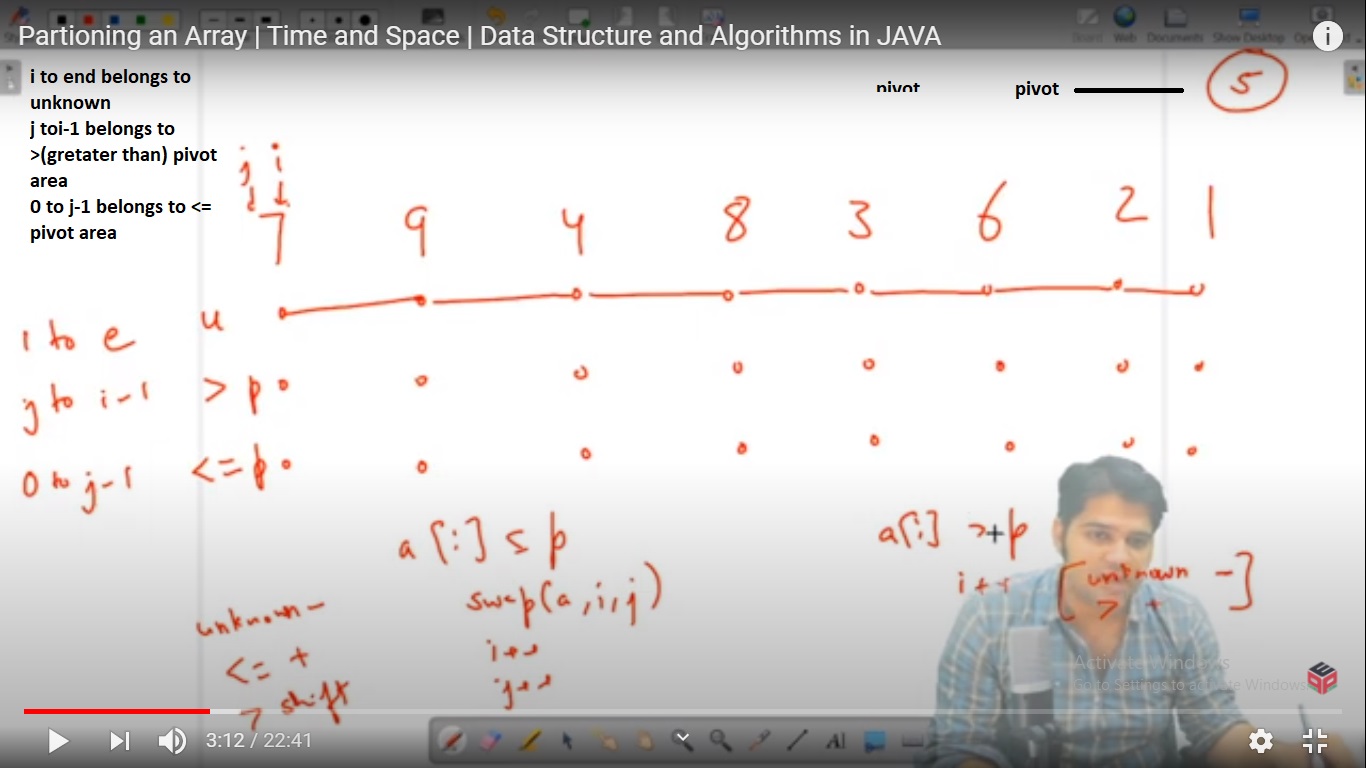 Partioning an Array | Time and Space | Data Structure and Algorithms in JAVA
Board Web Documents Show Desktop
i to end belongs to
unknown
j toi-1 belongs to
>(gretater than) pivot
area
0 to j-1 belongs to <=
pivot area
pivot pivot 5
j i
7 9 4 8 3 6 2 1
i to e u
j to i-1 > p
0 to j-1 <= p
a[i] ≤ p
swap(a,i,j)
i++
j++
unknown -
<= +
> shift
a[i] > p
i++ [unknown -]
> +
Activate Windows
Go to Settings to activate Windows.
3:12 / 22:41
AI